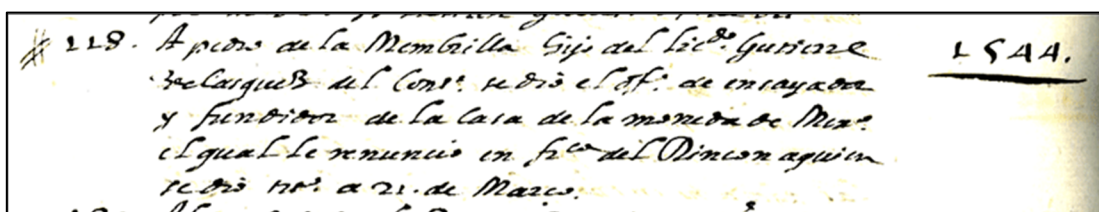 118. A pedro de la Membrilla hijo del Lic.do Gutierre 1544.
Velasquez del Cons.o se dió el of.o de ensayador
y fundidor de la casa de la moneda de Mex.co
el qual le renunció en fr.co del Rincon aquien
se dió tit.o a 21. de Março.